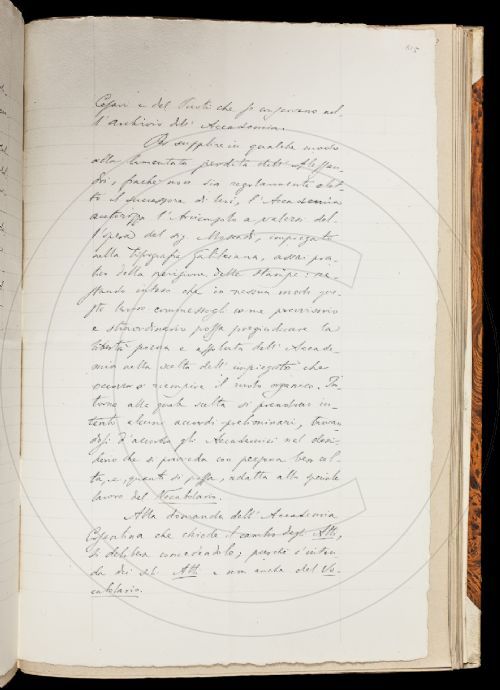 115
Cesari e del Puoti che si conservano nel-
l'Archivio dell'Accademia.
Per supplire in qualche modo
alla lamentata perdita dell'Alessan-
dri, finchè non sia regolarmente elet-
to il successore di lui, l'Accademia
autorizza l'Arciconsolo a valersi del-
l'opera del sig. impiegato
nella tipografia Galileiana, assai pra-
tico della revisione delle stampe: re-
stando inteso che in nessun modo que-
sto lavoro commessogli come provvisorio
e straordinario possa pregiudicare la
libertà piena e assoluta dell'Accade-
mia nella scelta dell'impiegato che
occorre a riempire il ruolo organico. In-
torno alla quale scelta si prendono in-
tanto alcuni accordi preliminari, trovan-
dosi d'accordo gli Accademici nel desi-
derio che si provveda con persona ben col-
ta, e, quanto si possa, adatta allo speciale
lavoro del Vocabolario.
Alla domanda dell'Accademia
che chiede il cambio degli Atti,
si delibera concedendolo; purchè s'inten-
da dei soli Atti e non anche del Vo-
cabolario.